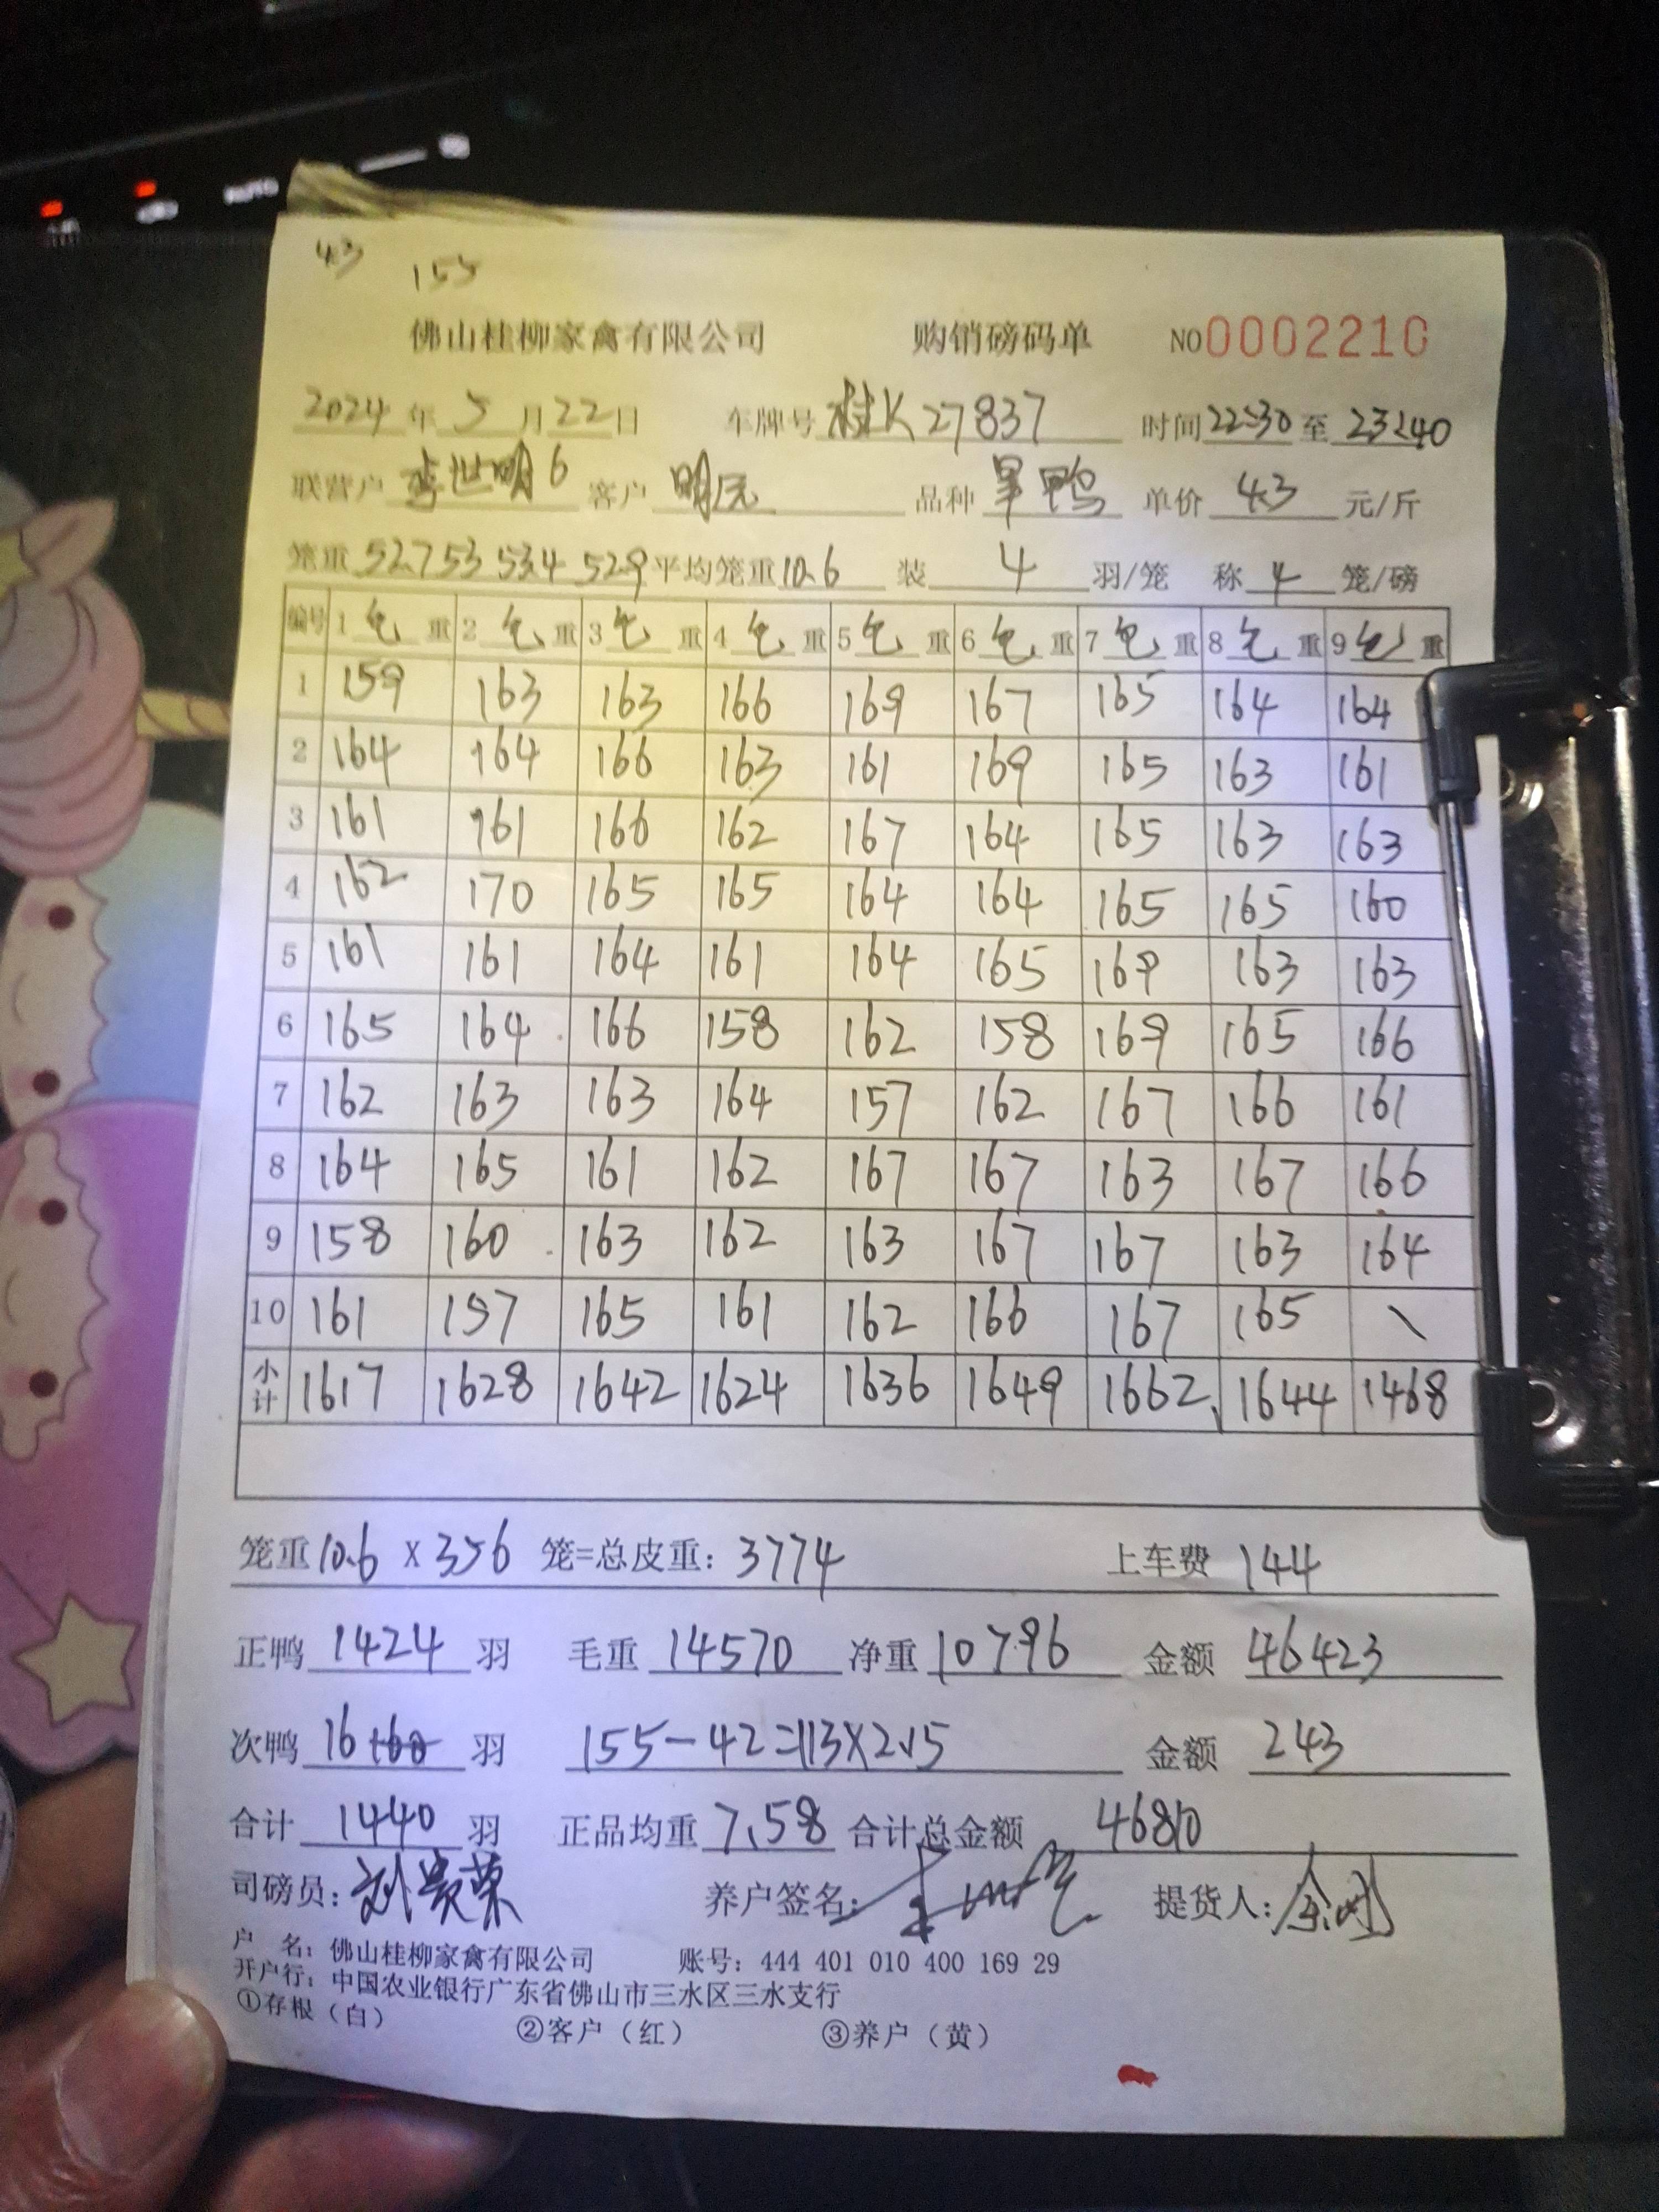 4.3 155
佛山桂柳家禽有限公司 购销磅码单 NO 0002210
2024 年 5 月 22 日 车牌号 桂K 27837 时间 22:30 至 23:40
联营户 李世明6 客户 品种 单价 4.3 元/斤
笼重 52.7 53 53.4 52.9 平均笼重 10.6 装 4 羽/笼 称 4 笼/磅
编号 1 毛 重 2 毛 重 3 毛 重 4 毛 重 5 毛 重 6 毛 重 7 毛 重 8 毛 重 9 毛 重
1 159 163 163 166 169 167 165 164 164
2 164 164 166 163 161 169 165 163 161
3 161 161 166 162 167 164 165 163 163
4 162 170 165 165 164 164 165 165 160
5 161 161 164 161 164 165 169 163 163
6 165 164 166 158 162 158 169 165 166
7 162 163 163 164 157 162 167 166 161
8 164 165 161 162 167 167 163 167 166
9 158 160 163 162 163 167 167 163 164
10 161 157 165 161 162 166 167 165 \
小计 1617 1628 1642 1624 1636 1649 1662 1644 1468
笼重 10.6 X 356 笼=总皮重: 3774 上车费 144
正鸭 1424 羽 毛重 14570 净重 10796 金额 46423
次鸭 16 羽 155-42=113×2.15 金额 243
合计 1440 羽 正品均重 7.58 合计总金额 46810
司磅员: 刘贵荣 养户签名: 提货人:
户 名: 佛山桂柳家禽有限公司 账号: 444 401 010 400 169 29
开户行: 中国农业银行广东省佛山市三水区三水支行
①存根(白) ②客户(红) ③养户(黄)